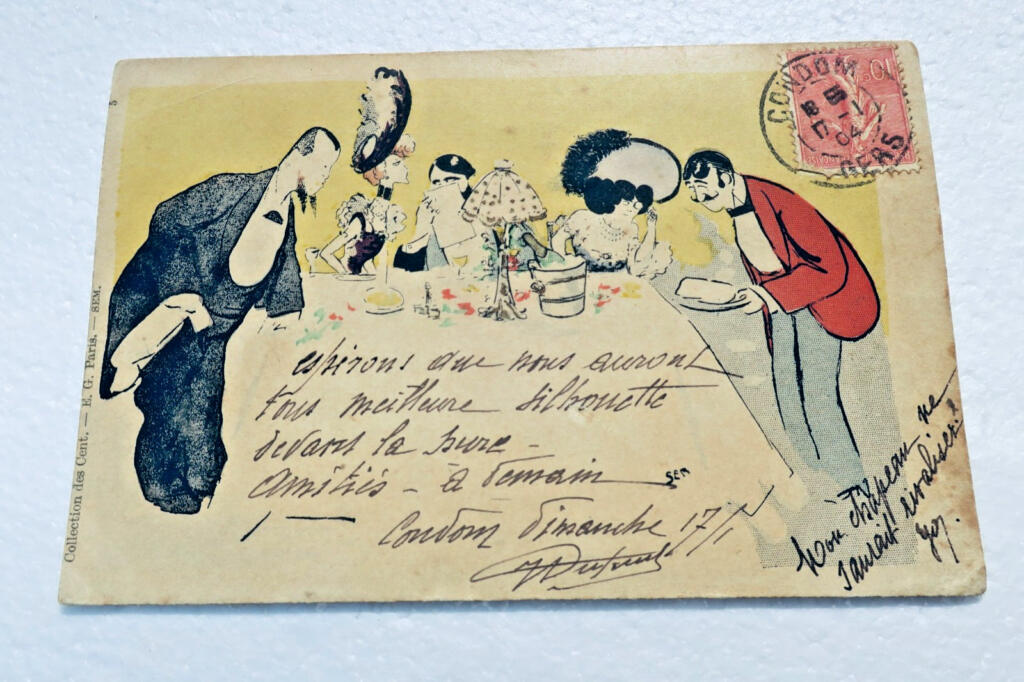 5
Collection des Cent. — E. G. Paris. — SEM.
CONDOM
GERS
17 - 1
04
10
espérons que nous auront
tous meilleure silhouette
devant la hure -
Amitiés - à demain
SEM
Condom Dimanche 17/1
Mon chapeau ne
saurait rivaliser!